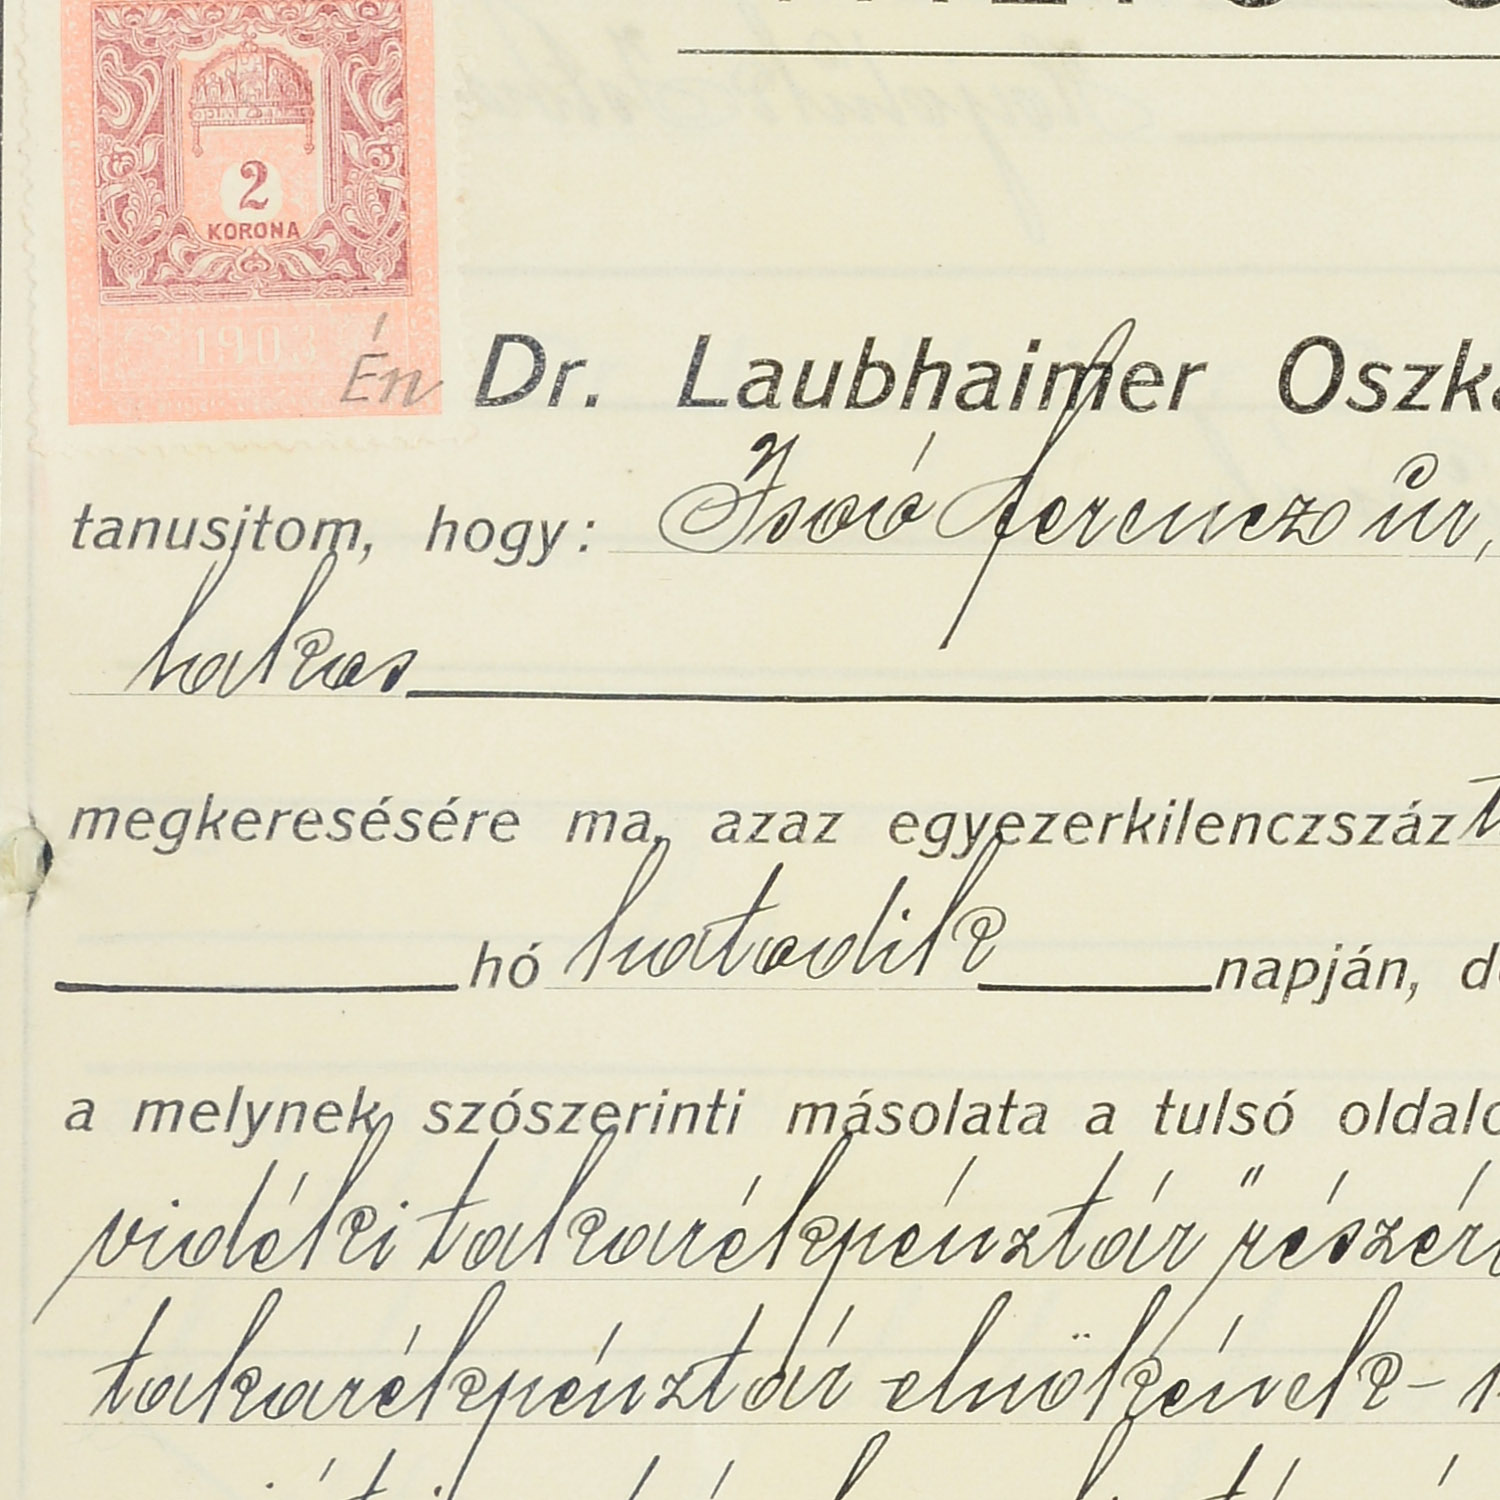 2
KORONA
1903
Én Dr. Laubhaimer Oszká
tanusitom, hogy: Isoó Ferencz úr,
lakos
megkeresésére ma, azaz egyezerkilenczszáz
hó hatodik napján, de
a melynek szószerinti másolata a tulsó oldalo
vidéki takarékpénztár" részér
takarékpénztár elnökének-